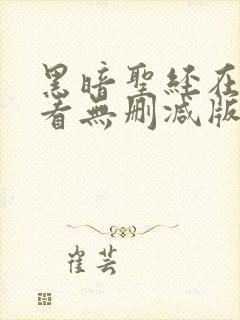 黑暗聖經在
看無刪減版
崔芸